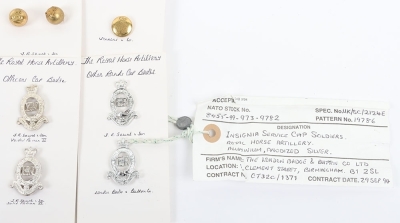 J.R. Gaunt & Son
The Royal Horse Artillery
Officers Cap Badge
J.R. Gaunt & Son
The Royal Horse Artillery
Other Ranks Cap Badge
J.R. Gaunt & Son
London Badge & Button Co
NATO STOCK No.
8455-99-973-9782
SPEC. No. UK/SC/2124E
PATTERN No. 19786
DESIGNATION
INSIGNIA SERVICE CAP SOLDIERS.
ROYAL HORSE ARTILLERY.
ALUMINIUM, ANODIZED SILVER.
FIRM'S NAME THE LONDON BADGE & BUTTON CO LTD
LOCATION CLEMENT STREET, BIRMINGHAM, B1 2SL
CONTRACT No. CT32C/1371 CONTRACT DATE 29 SEP 79